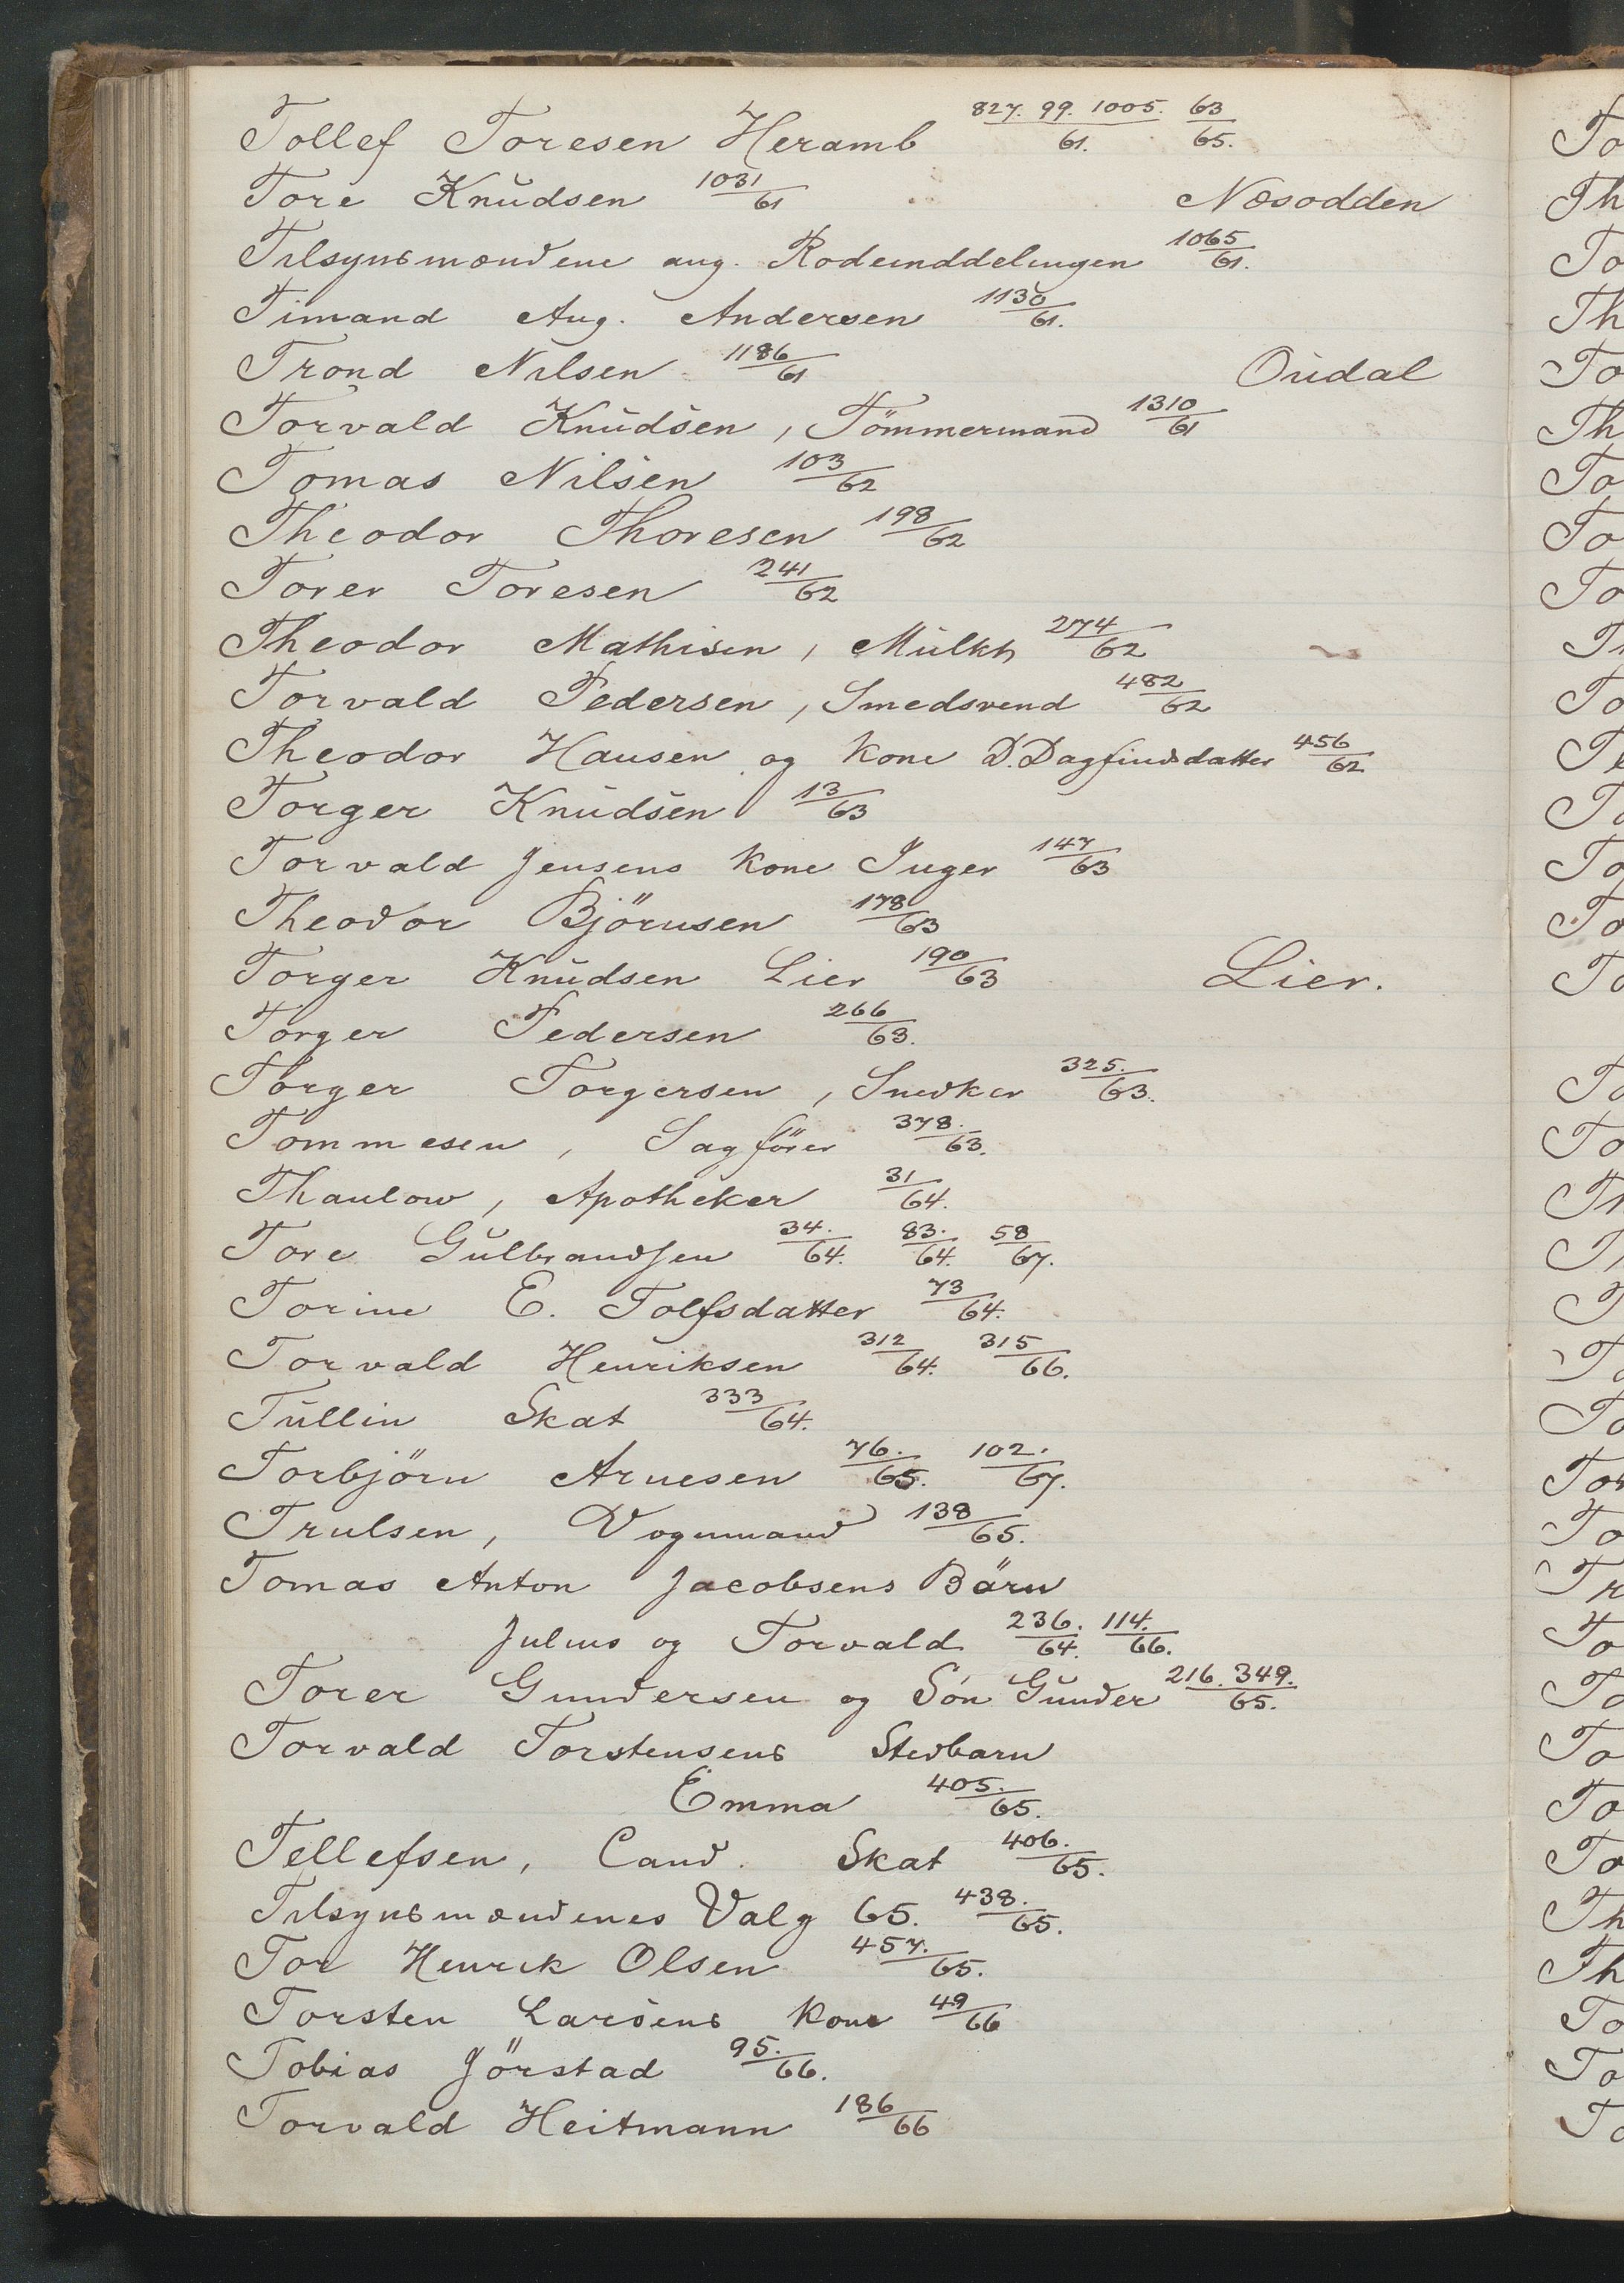 Tollef Toresen Heramb 827. 99. 1005./61. 63/65.
Tore Knudsen 1031/61 Næsodden
Tilsynsmændene ang. Rodeinddelingen 1065/61.
Timand Aug. Andersen 1130/61.
Trond Nilsen 1186/61 Oudal
Torvald Knudsen, Tömmermand 1310/61
Tomas Nilsen 103/62
Theodor Thoresen 198/62
Torer Toresen 241/62
Theodor Mathisen, Mulkt 274/62
Torvald Pedersen, Smedsvend 482/62
Theodor Hansen og Kone D. Dagfindsdatter 456/62
Torger Knudsen 13/63
Torvald Jensens Kone Inger 147/63
Theodor Björnsen 178/63
Torger Knudsen Lier 190/63 Lier.
Torger Pedersen 266/63.
Torger Torgersen, Snedker 325./63.
Tommesen, Sagförer 378./63.
Thaulow, Apotheker 31/64.
Tore Gulbrandsen 34./64. 83./64. 58/67.
Torine E. Tolfsdatter 73/64.
Torvald Henriksen 312/64. 315/66.
Tullin Skat 333/64.
Torbjörn Arnesen 76./65. 102./67.
Trulsen, Vognmand 138/65.
Tomas Anton Jacobsens Börn
Julius og Torvald 236./64. 114./66.
Torer Gundersen og Sön Gunder 216. 349./65.
Torvald Torstensens Stedbarn
Emma 405./65.
Tellefsen, Cand. Skat 406./65.
Tilsynsmændenes Valg 65. 438./65.
Tor Henrik Olsen 457./65.
Torsten Larsens Kone 49/66
Tobias Jörstad 95./66.
Torvald Heitmann 186/66